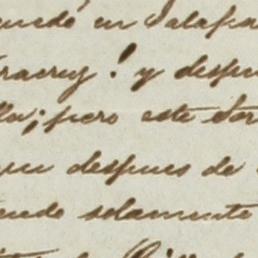 quedé en Jalapa
racruz! y despu
lla; pero este Tor
que despues de
uede solamente